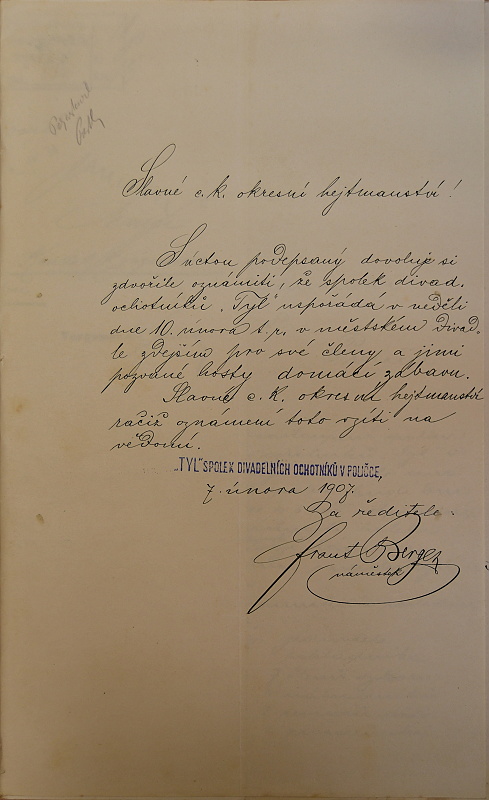 Slavné c. k. okresní hejtmanství!
S úctou podepsaný dovoluje si
zdvořile oznámiti, že spolek divad.
ochotníků „Tyl" uspořádá v neděli
dne 10. února t. r. v městském Divad.
le zdejším pro své členy a jimi
pozvané hosty domácí zábavu.
Slavné c. k. okresní hejtmanství
račiž oznámení toto vzíti na
vědomí.
„TYL" SPOLEK DIVADELNÍCH OCHOTNÍKŮ V POLIČCE,
7. února 1907.
Za ředitele:
Frant Berger
náměstek